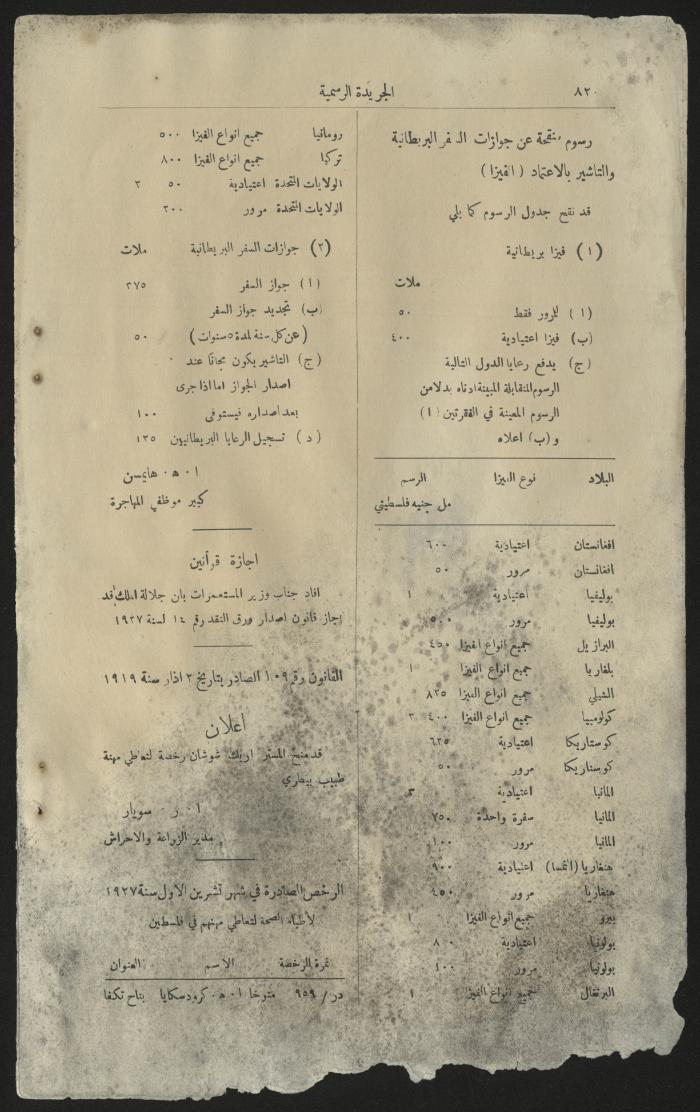 ٨٢٠
الجريدة الرسمية
رسوم منقحة عن جوازات السفر البريطانية
والتاشير بالاعتماد ( الفيزا )
قد نقح جدول الرسوم كما يلي
( ١ ) فيزا بريطانية
ملات
( ا ) للمرور فقط ٥٠
(ب) فيزا اعتيادية ٤٠٠
(ج) يدفع رعايا الدول التالية
الرسوم المتقابلة المبينة ادناه بدلا من
الرسوم المعينة في الفقرتين ( ا )
و (ب) اعلاه
البلاد نوع الفيزا الرسم
مل جنيه فلسطيني
افغانستان اعتيادية ٦٠٠
افغانستان مرور ٥٠
بوليفيا اعتيادية ١
بوليفيا مرور ٥٠٠
البرازيل جميع انواع الفيزا ٤٥٠
بلغاريا جميع انواع الفيزا ١
الشيلي جميع انواع الفيزا ٨٢٥
كولومبيا جميع انواع الفيزا ٤٠٠ ٢
كوستاريكا اعتيادية ٦٢٥
كوستاريكا مرور ٥٠
المانيا اعتيادية ٣
المانيا سفرة واحدة ٧٥٠
المانيا مرور ١٠٠
هنغاريا (النمسا) اعتيادية ٩٠٠
هنغاريا مرور ٤٥٠
بيرو جميع انواع الفيزا ١
بولونيا اعتيادية ٨٠٠
بولونيا مرور ١٠٠
البرتغال جميع انواع الفيزا ١
رومانيا جميع انواع الفيزا ٥٠٠
تركيا جميع انواع الفيزا ٨٠٠
الولايات المتحدة اعتيادية ٥٠ ٢
الولايات المتحدة مرور ٢٠٠
(٢) جوازات السفر البريطانية ملات
( ا ) جواز السفر ٣٧٥
(ب) تجديد جواز السفر
(عن كل سنة لمدة ٥ سنوات) ٥٠
(ج) التاشير يكون مجانا عند
اصدار الجواز اما اذا جرى
بعد اصداره فيستوفى ١٠٠
( د ) تسجيل الرعايا البريطانيين ١٢٥
ا ٠ ه ٠ هايمسن
كبير موظفي المهاجرة
اجازة قوانين
افاد جناب وزير المستعمرات بان جلالة الملك قد
اجاز قانون اصدار ورق النقد رقم ١٤ لسنة ١٩٢٧
القانون رقم ١٠٩ الصادر بتاريخ ٢ اذار سنة ١٩١٩
اعلان
قد منح المستر اريك شوشان رخصة لتعاطي مهنة
طبيب بيطري
ا ٠ ر ٠ سويار
مدير الزراعة والاحراش
الرخص الصادرة في شهر تشرين الاول سنة ١٩٢٧
لأطباء الصحة لتعاطي مهنهم في فلسطين
نمرة الرخصة الاسم العنوان
در / ٩٥٩ متوخا ا ٠ ه ٠ كرودسكايا بتاح تكفا